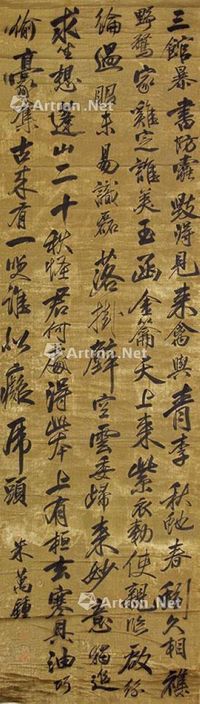 三館暴書防蠹毀得見來禽與青李秋虵春蚓久相雜
野鶩家雞定誰美玉函金籥天上來紫衣勅使親臨啟紛
綸過眼未易識磊落掛壁空雲委歸來妙意獨追
求坐想蓬山二十秋怪君何處得此本上有桓玄寒具油巧
偷豪奪古來有一笑誰似癡虎頭
米萬鍾
Artron.Net
Artron.Net
Artron.Net